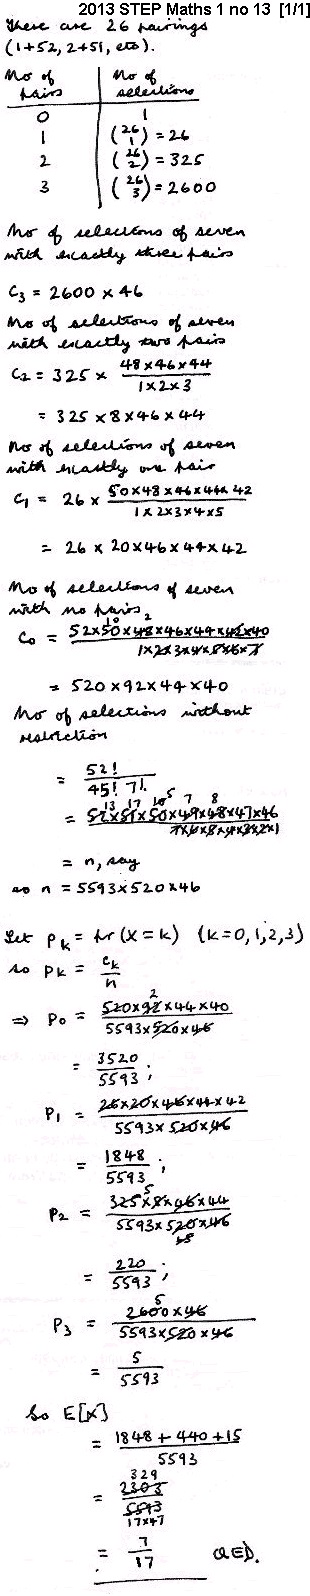 2013 STEP Maths 1 no 13 [1/1]
There are 26 pairings
(1+52, 2+51, etc).
No of pairs | No of selections
0 | 1
1 | (26 1) = 26
2 | (26 2) = 325
3 | (26 3) = 2600
No of selections of seven
with exactly three pairs
C₃ = 2600 × 46
No of selections of seven
with exactly two pairs
C₂ = 325 × 48×46×44 / 1×2×3
= 325 × 8×46×44
No of selections of seven
with exactly one pair
C₁ = 26 × 50×48×46×44×42 / 1×2×3×4×5
= 26 × 20×46×44×42
No of selections of seven
with no pairs
C₀ = 52×50×48×46×44×42×40 / 1×2×3×4×5×6×7
= 520×92×44×40
No of selections without
restriction
= 52! / 45! 7!
= 52×51×50×49×48×47×46 / 7×6×5×4×3×2×1
= n, say
so n = 5593×520×46
Let Pk = Pr(X=k) (k=0,1,2,3)
so Pk = Ck / n
⇒ P₀ = 520×92×44×40 / 5593×520×46
= 3520 / 5593 ;
P₁ = 26×20×46×44×42 / 5593×520×46
= 1848 / 5593 ;
P₂ = 325×8×46×44 / 5593×520×46
= 220 / 5593 ;
P₃ = 2600×46 / 5593×520×46
= 5 / 5593
So E[X]
= 1848 + 440 + 15 / 5593
329
= 2303 / 5593
17×47
= 7 / 17 QED.